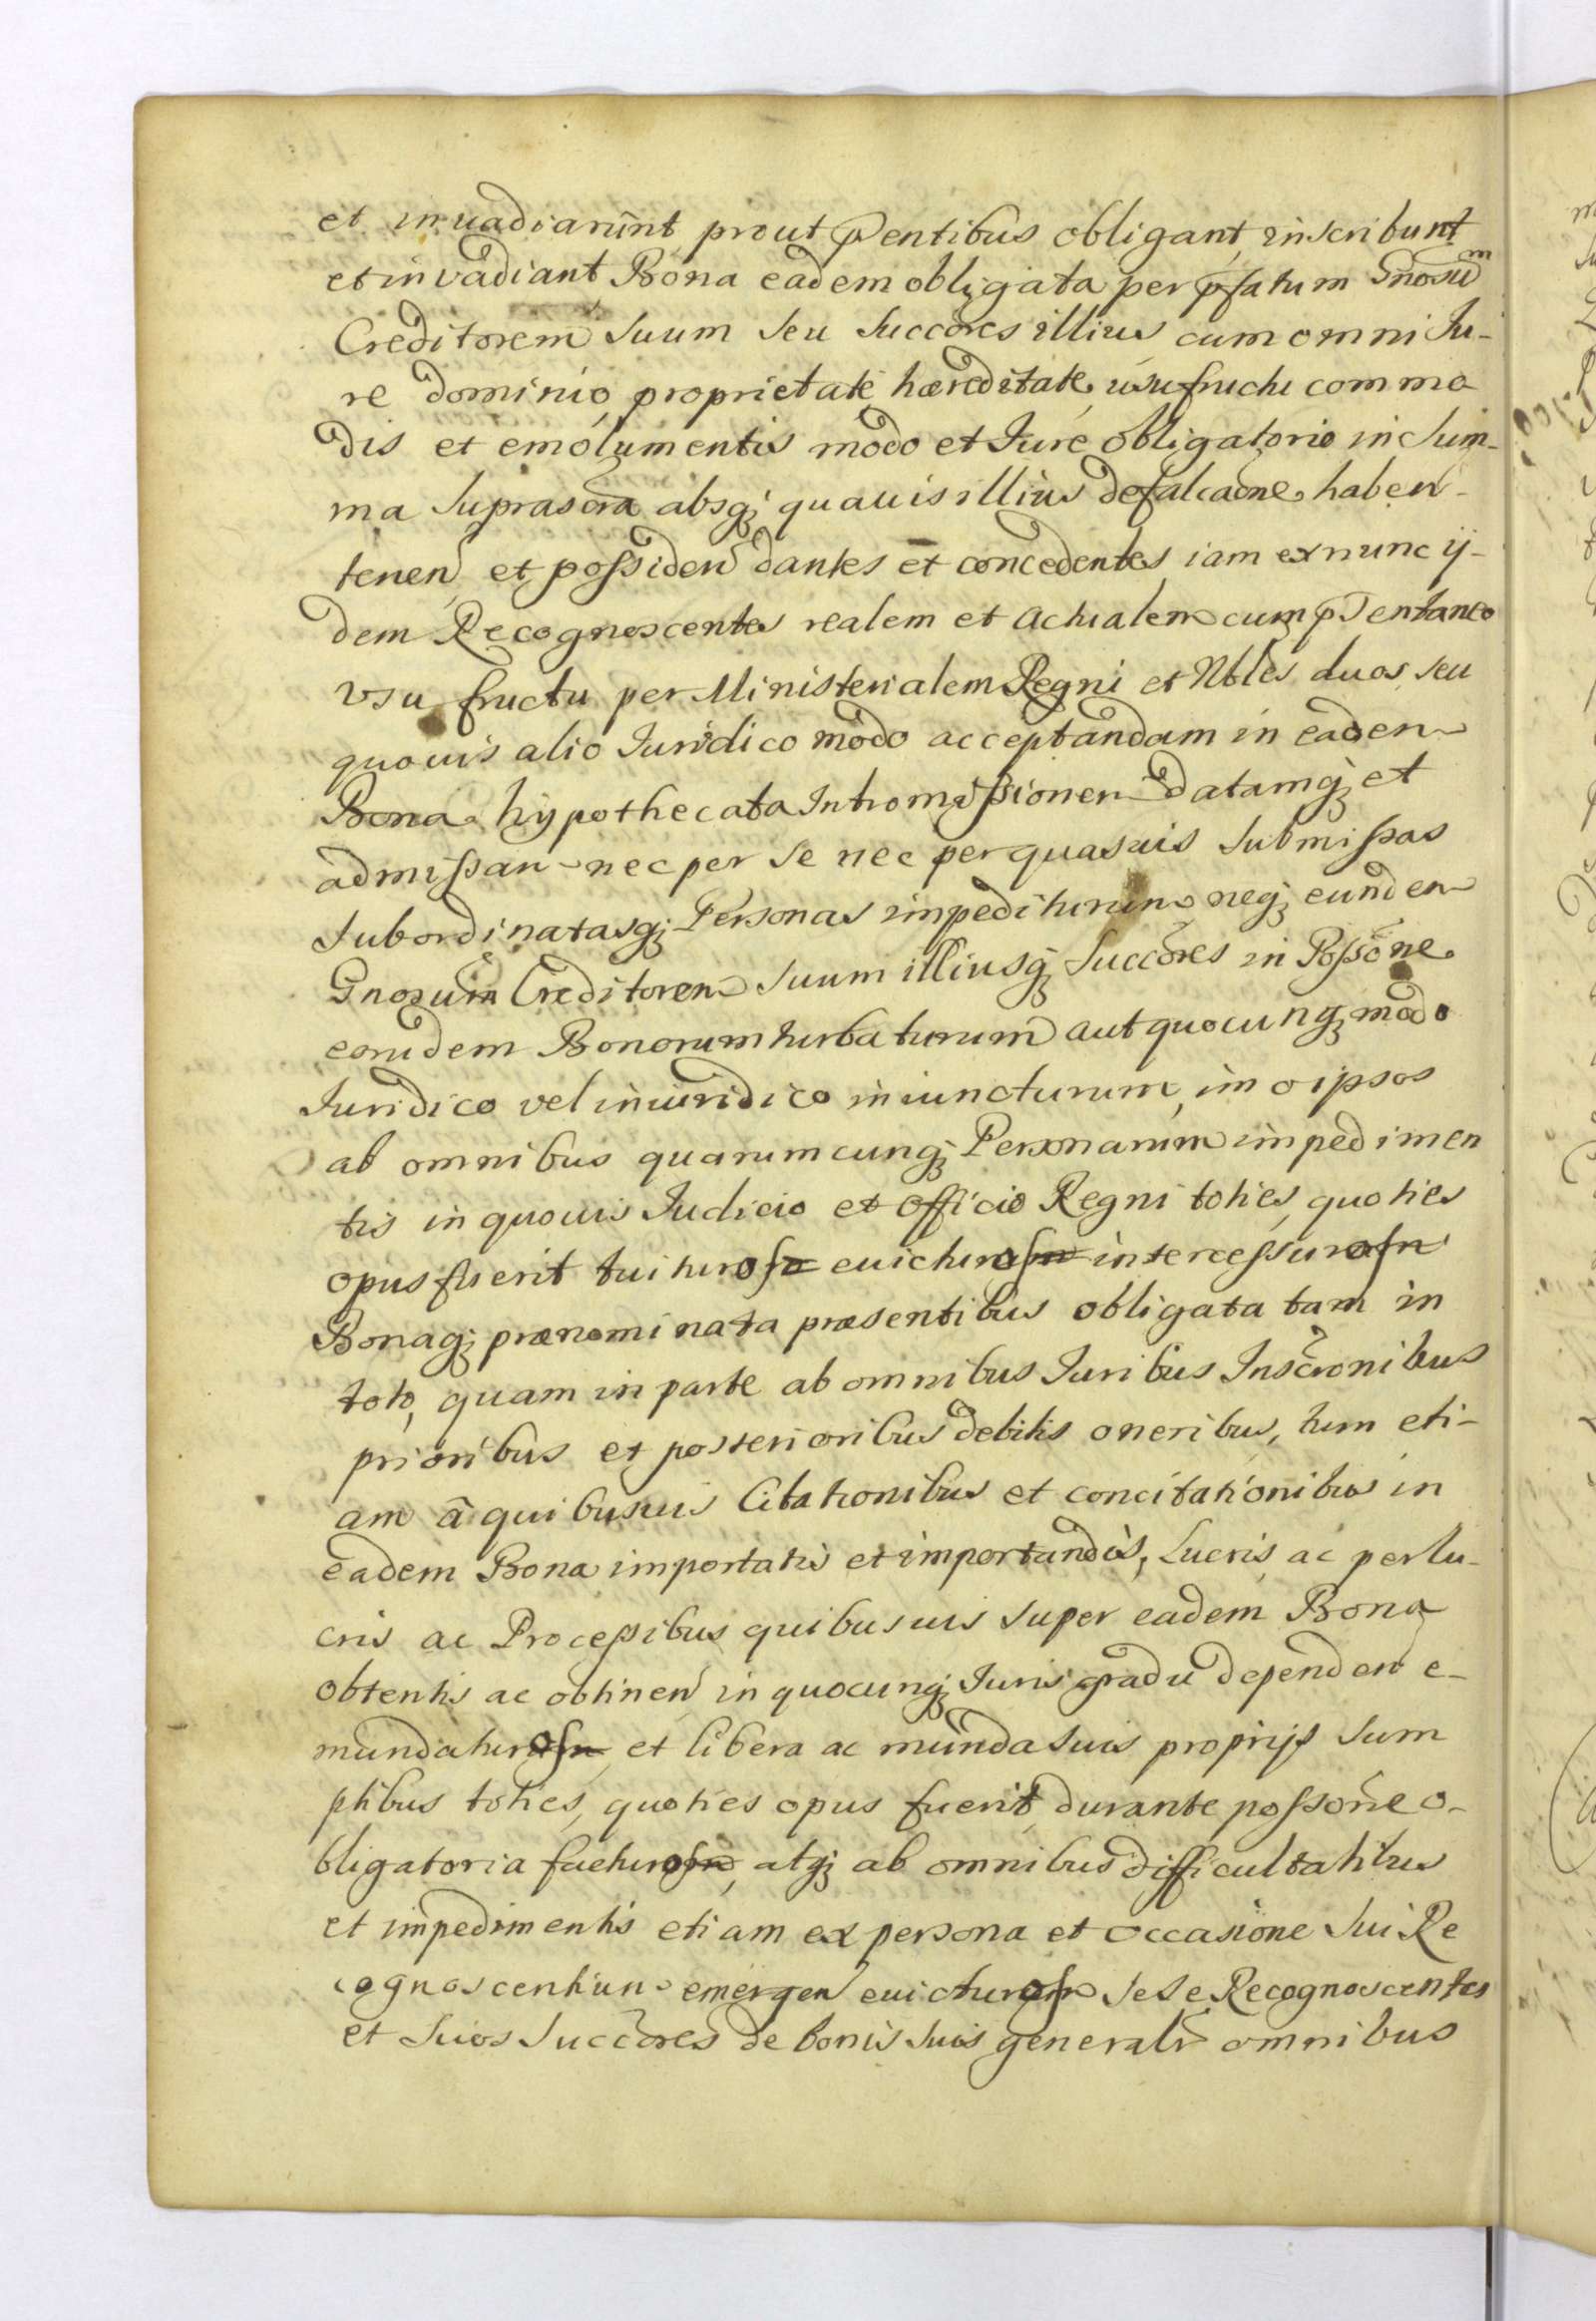 et inuadiarunt prout pñtibus obligant, inscribunt
et invadiant Bona eadem obligata per pfatum Gñosum
Creditorem suum seu succores illius cum omni Iu-
re dominio, proprietate, hæreditate, usufructu commo
dis et emolumentis modo et Iure obligatorio in sum-
ma suprascra absq; quavis illius defalcaone haben-
tenen et possiden dantes et concedentes iam ex nunc ij-
dem Recognoscentes realem et actualem cum pntaneo
vsu fructu per Ministerialem Regni et Nbles duos seu
quovis alio Iuridico modo acceptandam in eadem
Bona hypothecata Intromissionem datamq; et
admissam nec per se nec per quasuis submissas
subordinatasq; Personas impediturum neq; eundem
Gnosum Creditorem suum illiusq; succores in Possone
eorudem Bonorum turbaturum aut quocunq; modo
Iuridico vel iniuridico iniuncturum, imo ipsos
ab omnibus quarumcunq; Personarum impedimen
tis in quouis Iudicio et officio Regni toties, quoties
opus fuerit tuituros euicturos intercessuros
Bonaq; prænominata præsentibus obligata tam in
toto, quam in parte ab omnibus Iuribus Inscronibus
prioribus et posterioribus debitis oneribus, tum eti-
am à quibusuis Citationibus et concitationibus in
eadem Bona importatis et importandis, Lucris, ac perlu-
cris ac Processibus quibusuis super eadem Bona
obtentis ac obtinen in quocunq; Iuris gradu dependen e-
mundaturos et libera ac munda suis proprijs sum
ptibus toties, quoties opus fuerit, durante possone o-
bligatoria facturos, atq; ab omnibus difficultatibus
et impedimentis etiam ex persona et occasione sui Re
cognoscentium emergen euicturos sese Recognoscentes
et suos succores de bonis suis generalr omnibus